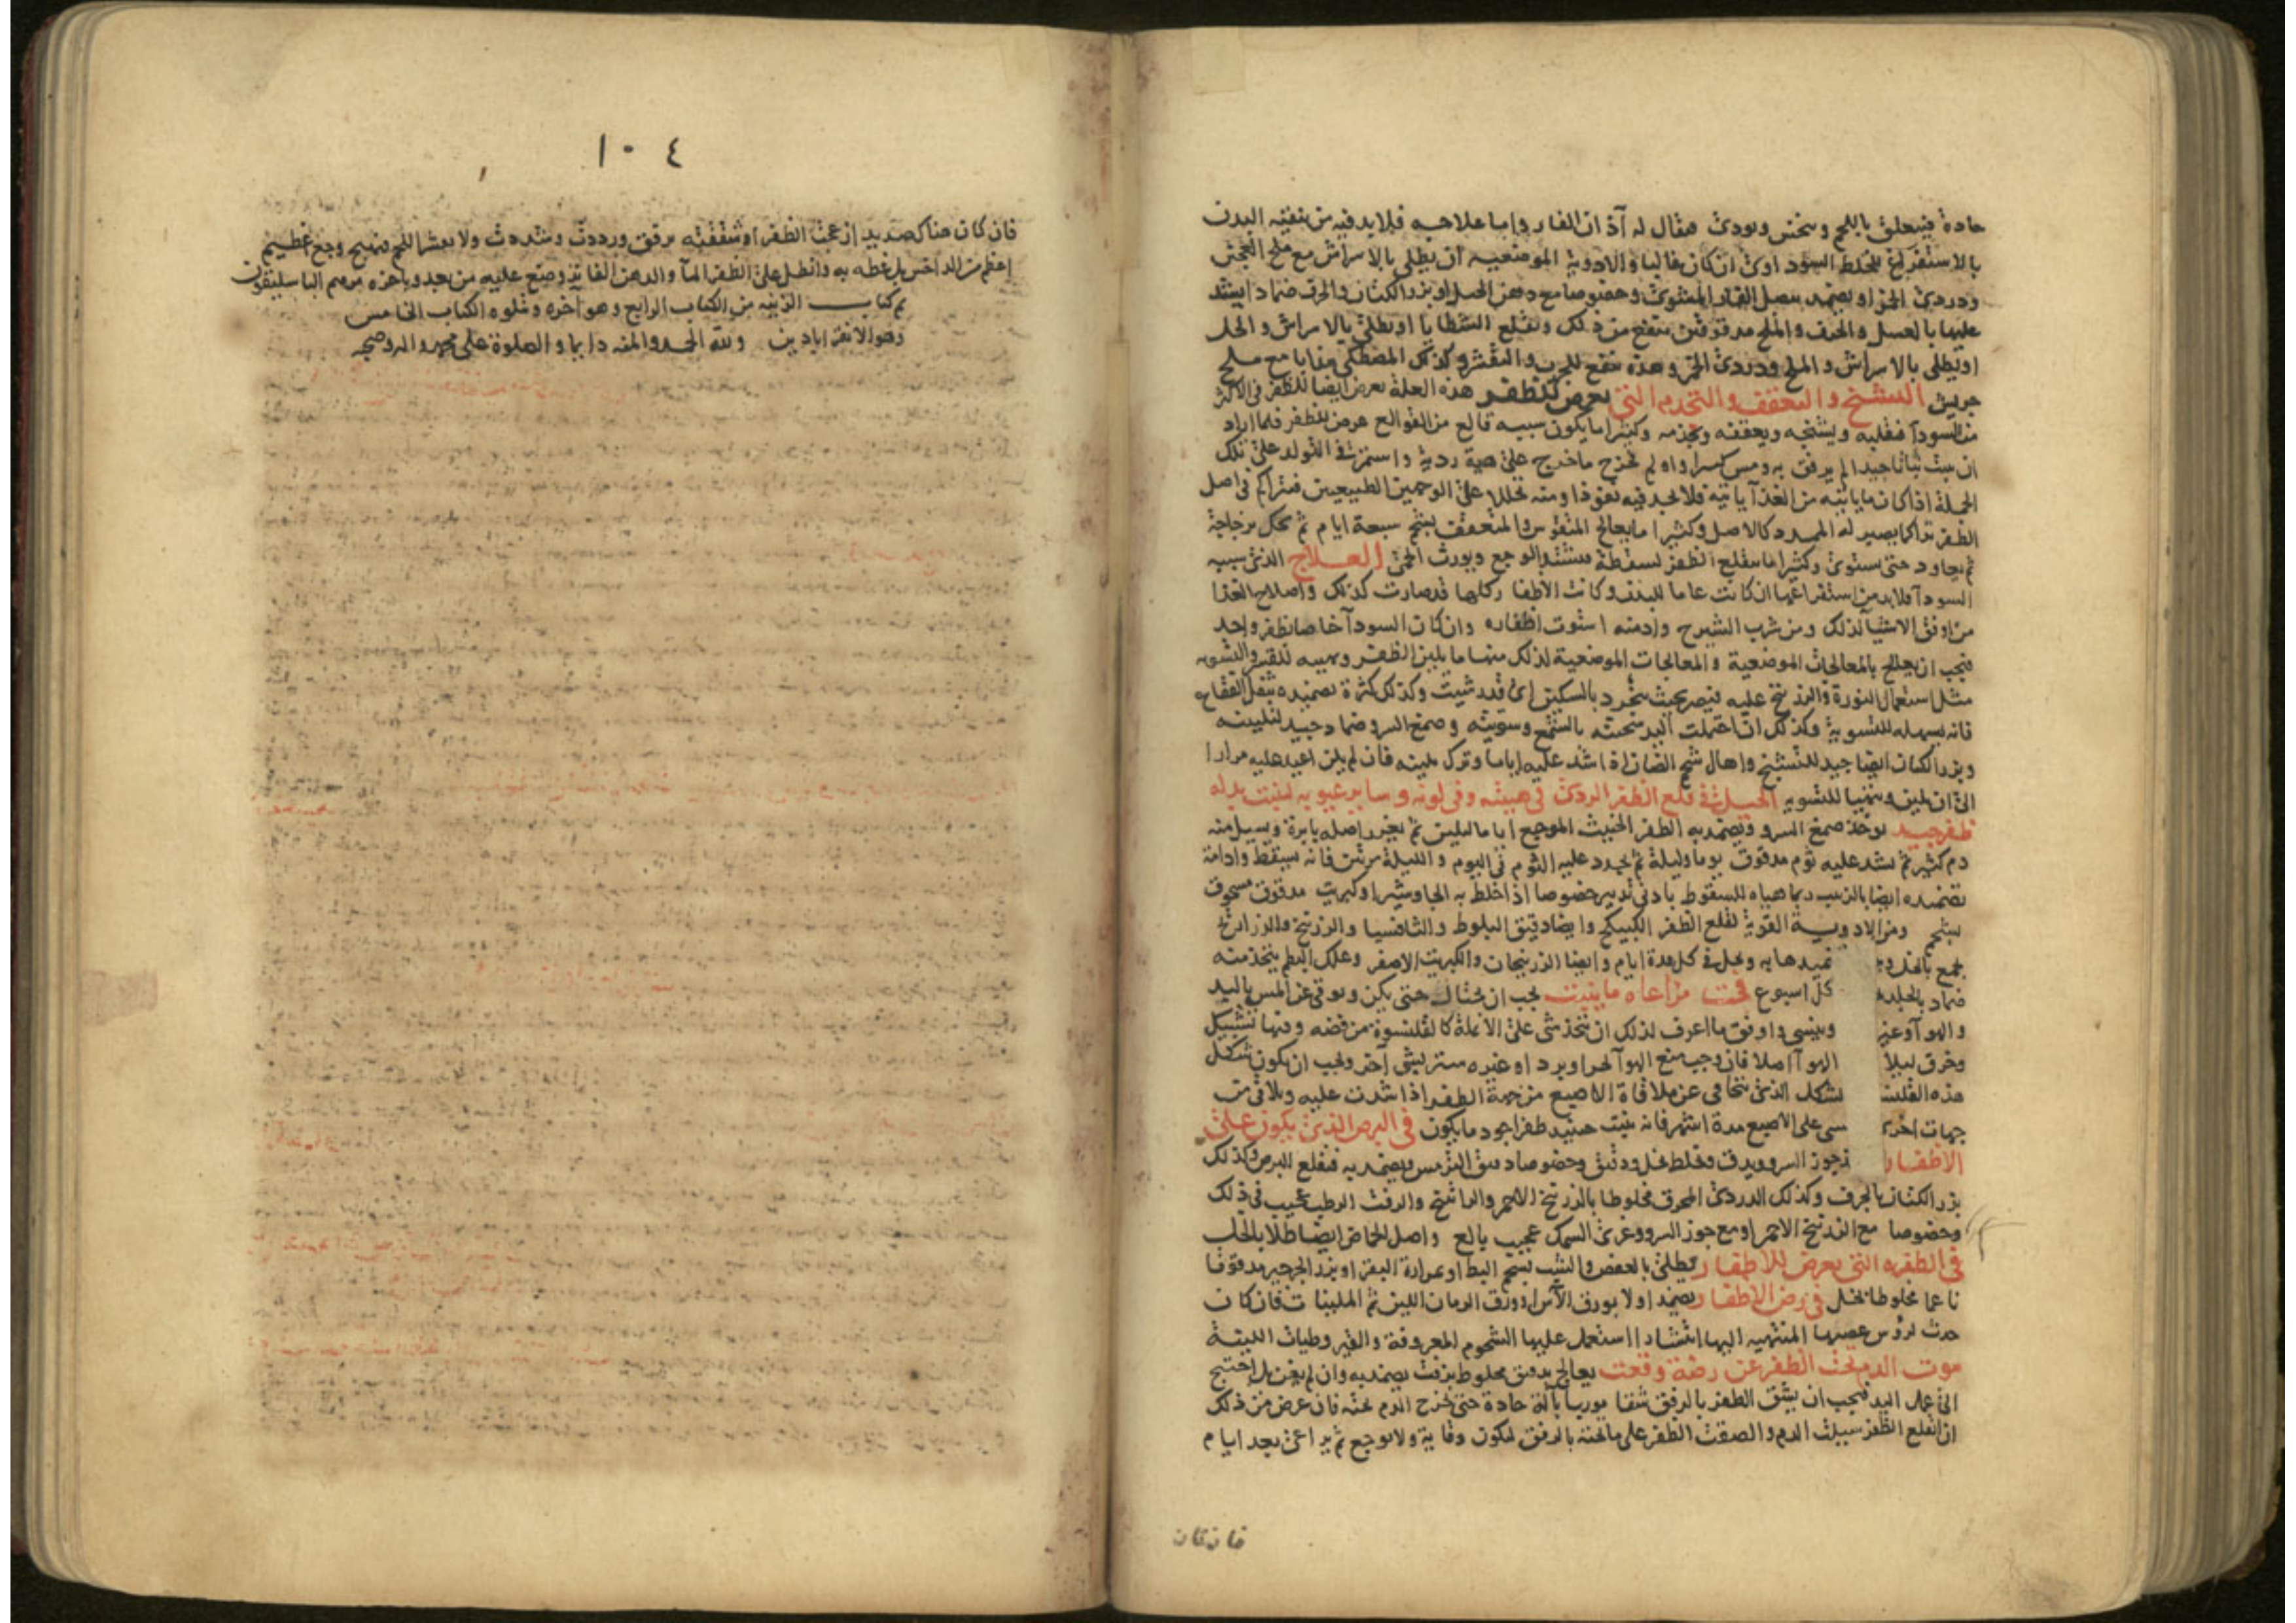 حادة فيتعلق باللحم وينخس ويوذى فيقال له آذان الفار واما علاجه فلابد فيه من تنقية البدن
بالاستفراغ للخلط السوداوى ان كان غالبا والادوية الموضعيه ان يطلى بالاسراش مع ملح العجين
ودردى الخمر او يضمد ببصل الفار المشوى وخصوصا مع دهن الخل او بزر الكتان والحرف ضمادا يشد
عليها بالعسل والحرف والملح مدقوقين ينفع من ذلك ويقلع الشظايا او يطلى بالاسراش والخل
او يطلى بالاسراش والملح ودردى الخمر وهذه تنفع للجرب والتقشر وكذلك المصطكى مذابا مع ملح
جريش التشنج والتعقف والتجذم التى يعرض للظفر هذه العلة يعرض ايضا للظفر فى الاكثر
من السودا فقلبه ويشنجه ويعقفه ويجذمه وكثيرا ما يكون سببه قالع من القوالع عرض للظفر فلما اراد
ان ينبت نباتا جيدا لم يرفق به ومس كسرا واو لم يخرج ماخرج على هية ردية واستمرت فى التولد على تلك
الجملة اذا كان ما ياتيه من الغذآ ياتيه فلا يجد فيه نفوذا ومنه تحللا على الوجهين الطبيعيين فتراكم فى اصل
الظفر تراكما يصير له الممدد كالاصل وكثيرا ما يعالج المتقوس والمتعقف بشحم سبعة ايام ثم يحك بزجاجة
ثم يعاود حتى يستوى وكثيرا ما ينقلع الظفر لسقطة فيشتد الوجع ويورث الحمى العلاج الذى سببه
السودآ فلابد من استفراغها ان كانت عاما للبدن وكانت الاظفار كلها قد صارت كذلك واصلاح الغذا
من اوفق الاشيا لذلك ومن شرب الشيرج وادمنه استوت اظفاره وان كان السودآ خاصا بظفر واحد
فيجب ان يعالج بالمعالجات الموضعية والمعالجات الموضعية لذلك منها ما يلين الظفر ويهيئه للقشر والتسويه
مثل استعمال النورة والزرنيخ عليه فيصير بحيث ينجرد بالسكين اى قدر شيت وكذلك كثرة تضميده بثفل الفقاع
فانه يسهله للتسوية وكذلك ان احتملت اليد سحبته بالشمع وسويته وصمغ السرو ضماد جيد لتليينه
وبزر الكتان ايضا جيد للتشنج واهال شحم الضان اذا شد عليه اياما وترك يلينه فان لم يلن اعيد عليه مرارا
الى ان يلين ويتهيا للتسويه الحيلة فى قلع الظفر الردى فى هيئته وفى لونه وساير عيوبه لينبت بدله
ظفر جيد يوخذ صمغ السرو ويضمد به الظفر الخبيث الموجع اياما ليلين ثم يغرز اصله بابرة ويسيل منه
دم كثير ثم يشد عليه ثوم مدقوق يوما وليلة ثم يجدد عليه الثوم فى اليوم والليلة مرتين فانه يسقط وادامة
تضميده ايضا بالزبيب ربما هياه للسقوط بادنى تدبير خصوصا اذا خلط به الجاوشير او كبريت مدقوق مسحوق
بشحم ومن الادوية القوية لقلع الظفر الكبيكج وايضا دبق البلوط والثافسيا والزرنيخ والزراريح
يجمع بالخل ويضـ ـميدها به ويحل فى كل مدة ايام وايضا الزرنيخان والكبريت الاصفر وعلك البطم يتخذ منه
ضماد بالخل ـ كل اسبوع فى مراعاه ما ينبت يجب ان يحتال حتى يكن ويوقى عن المس باليد
والهوآ وغير وينسى واوفق ما اعرف لذلك ان يتخذ شى على الانملة كالقلنسوة من فضه وفيها تشبيك
وخرق ليلا الهوآ اصلا فان وجب منع الهوآ لحر او برد او غيره ستر بشى آخر ويجب ان يكون شكل
هذه القلنسـ لشكل الذى يتجافى عن ملاقاة الاصبع من جهة الظفر اذا شدت عليه ويلاقى من
جهات اخرى سى على الاصبع مدة اشهر فانه ينبت حينيذ ظفر اجود ما يكون فى البرص الذى يكون على
الاظفار جوز السرو ويدق ويخلط بخل ودقيق وخصوصا دقيق الترمس ويضمد به فيقلع البرص وكذلك
بزر الكتان بالحرف وكذلك الدردى المحرق مخلوطا بالزرنيخ الاحمر والراتينج والزفت الرطب عجيب فى ذلك
وخصوصا مع الزرنيخ الاحمر او مع جوز السرو وغرى السمك عجيب بالغ واصل الحماض ايضا طلا بالخل
فى الظفره التى يعرض للاظفار يطلى بالعفص والشب بشحم البط او مرارة البقر او بزر الجرجير مدقوقا
ناعما مخلوطا بخل فى رض الاظفار يضمد اولا بورق الآس او ورق الرمان اللين ثم الملينات فان كان
حدث لروس عصبها المنتهيه اليها انشداد استعمل عليها الشحوم المعروفة والقيروطيات اللينة
موت الدم تحت الظفر عن رضة وقعت يعالج بدقيق مخلوط بزفت يضمد به وان لم يغن بل احتيج
الى عمل اليد فيجب ان يشق الظفر بالرفق شقا موربا بآلة حادة حتى يخرج الدم عنه فان عرض من ذلك
ان انقلع الظفر سيلت الدم والصقت الظفر على ما تحته بالرفق ليكون وقاية ولا يوجع ثم يراعى بعد ايام
فان كان
١٠٤
فان كان هناك صديد ازعجت الظفر او شققته برفق ورددت وشددت ولا يعشر اللحم فيهيج وجع عظيم
اعظم من الداحس بل غطه به وانطل على الظفر المآ والدهن الفاتر وضع عليه من بعد وياخره مرهم الباسليقون
تم كتاب الزينه من الكتاب الرابع وهو آخره ويتلوه الكتاب الخامس
وهو الاقراباذين ولله الحمد والمنه دايما والصلوة على محمد واله وصحبه